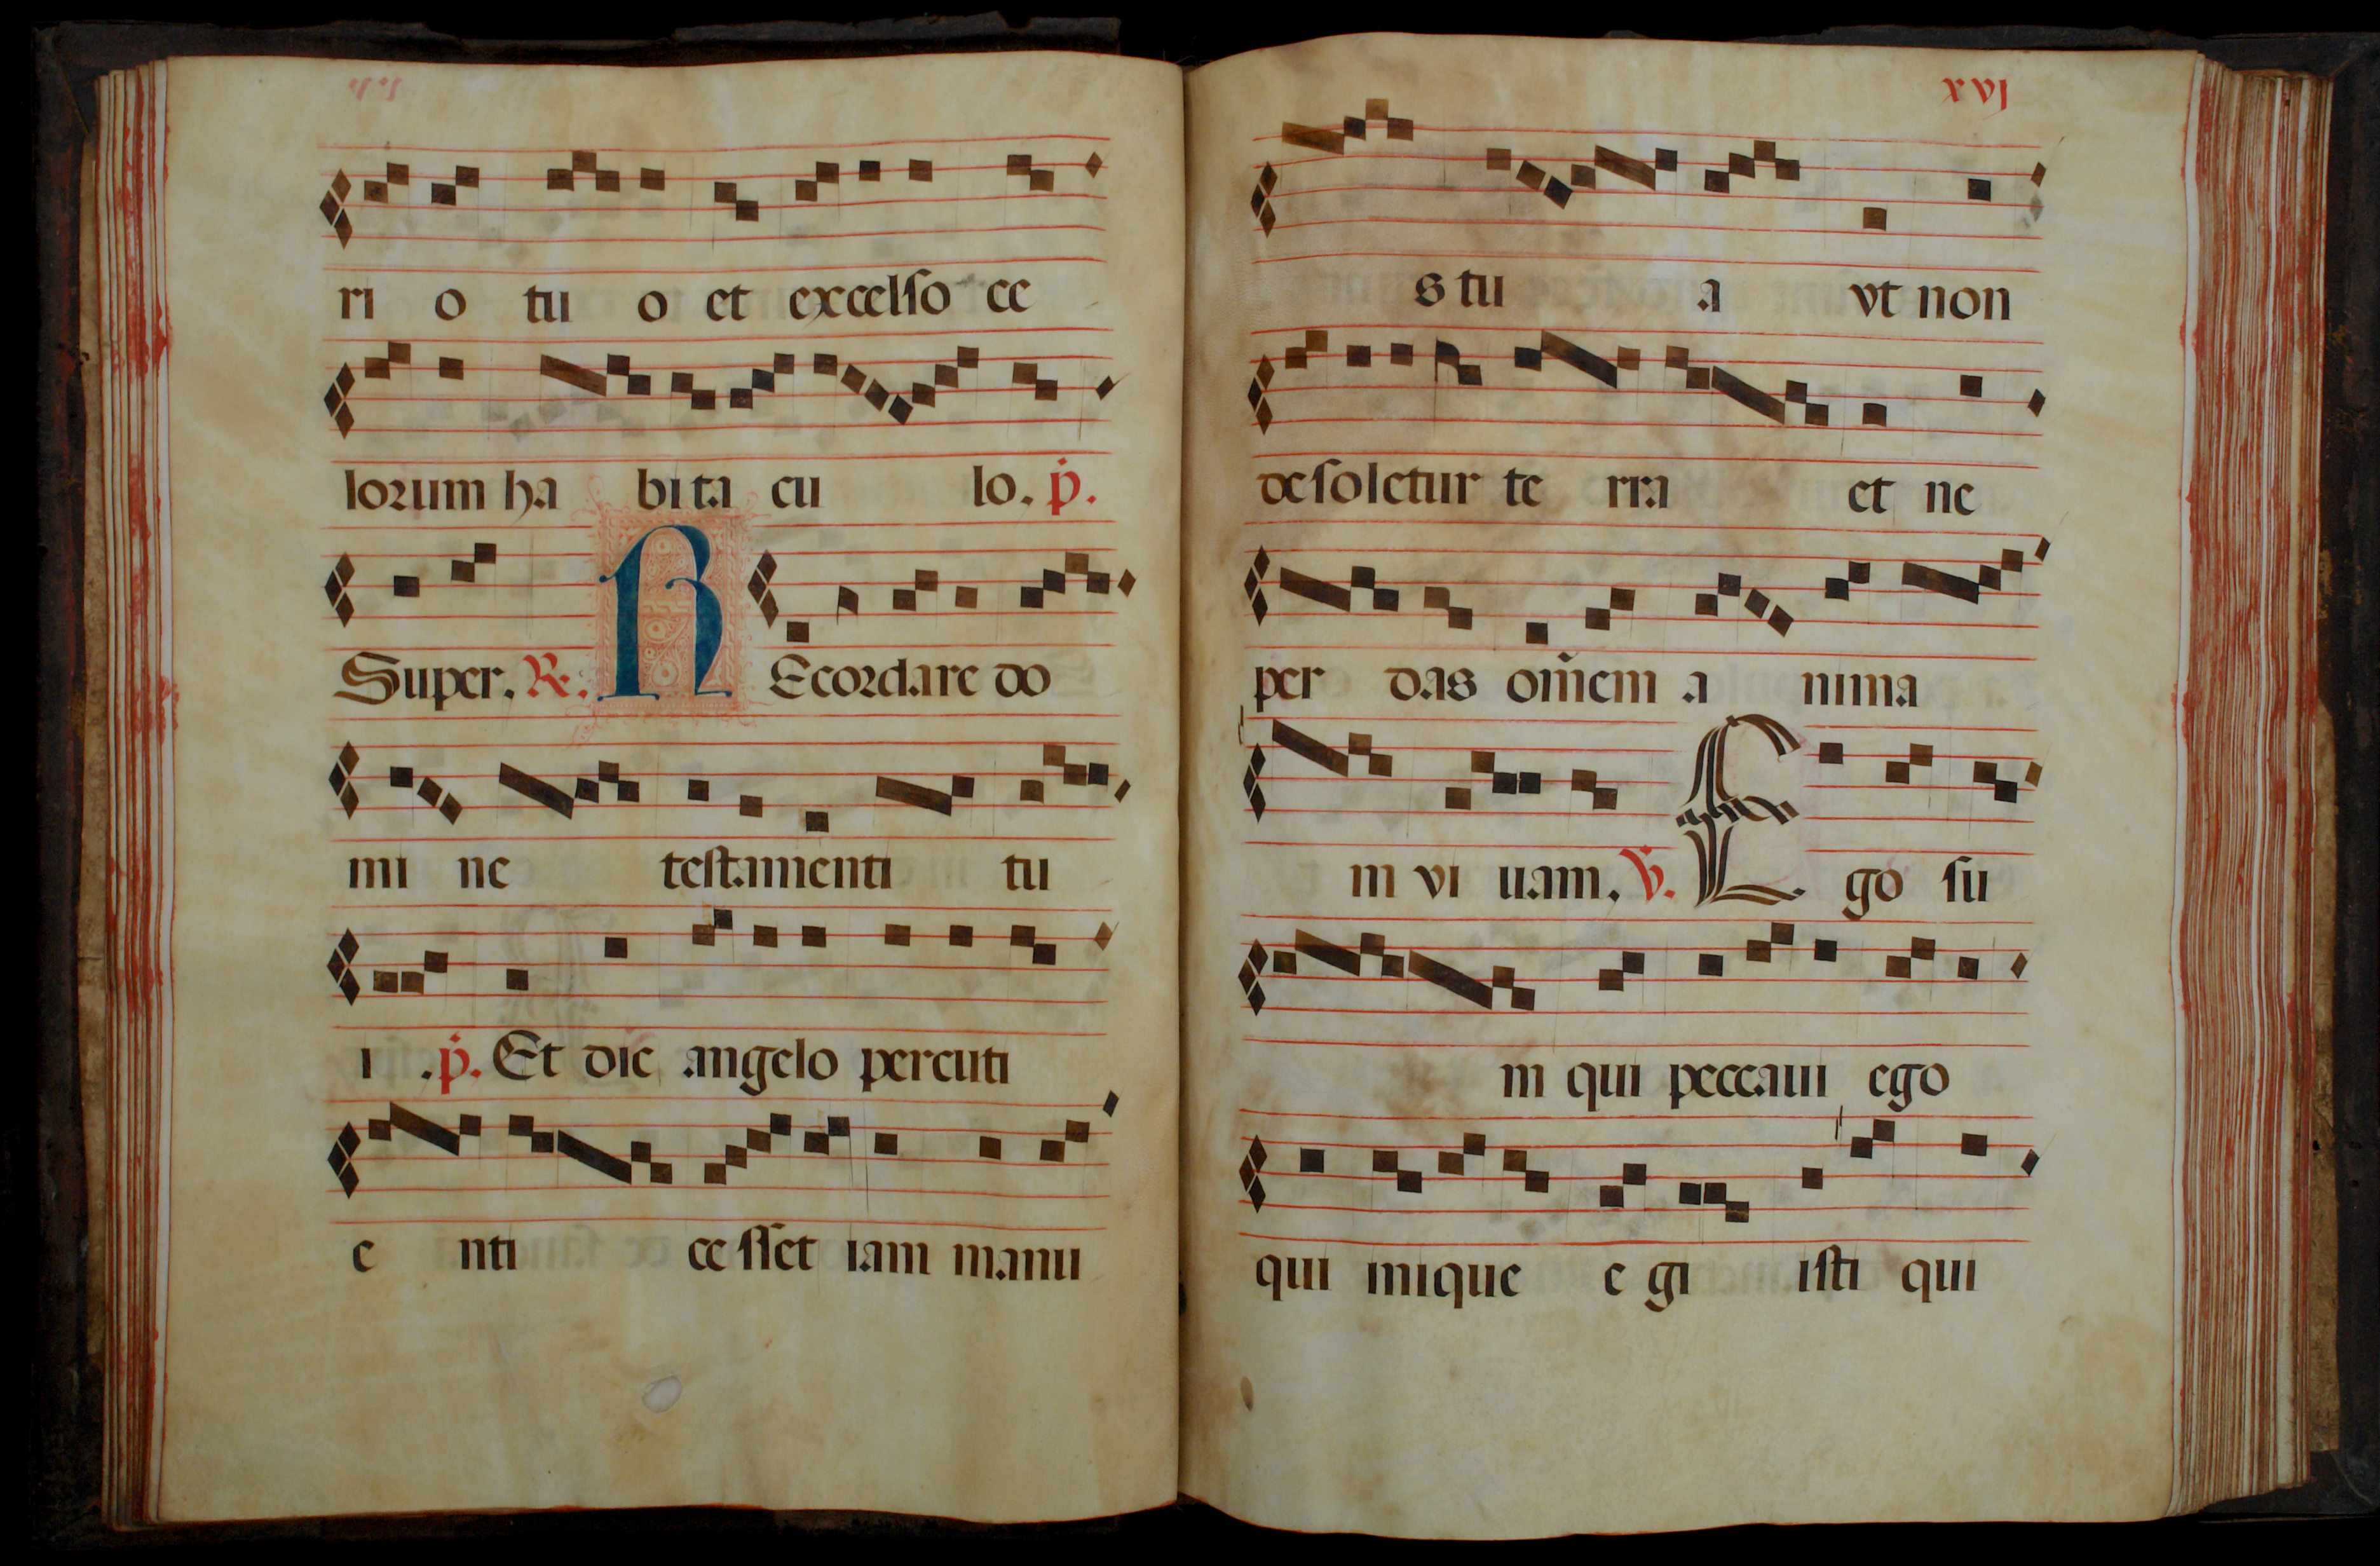 ri o tu o et excelso ce
lorum ha bi ta cu lo. p.
Super. R. R Ecordare do
mi ne testamenti tu
i .p. Et dic angelo percuti
e nti ce sset iam manu
xvj
s tu a vt non
desoletur te rra et ne
per das om̄em a nima
m vi uam. V. E go su
m qui peccaui ego
qui inique e gi isti qui